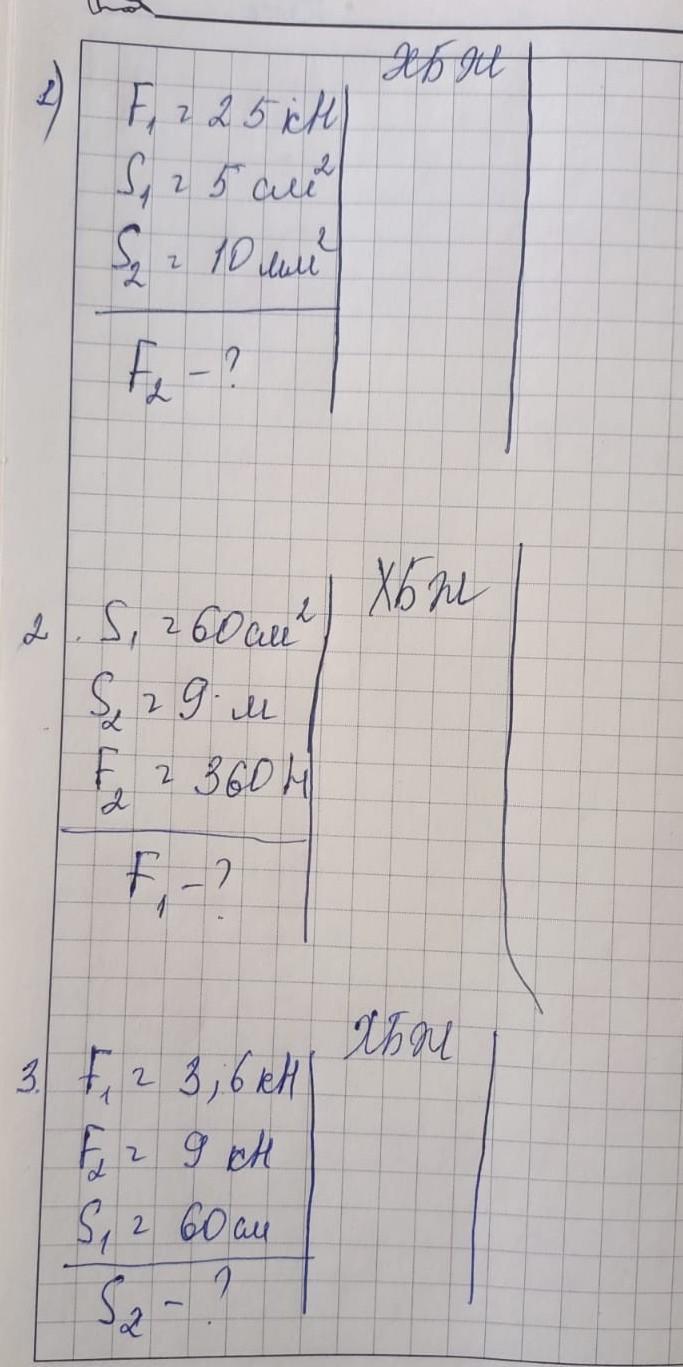 1)
F₁ = 25 кН
ХБЖ
S₁ = 5 см²
S₂ = 10 мм²
F₂ - ?
2. S₁ = 60 см²
ХБЖ
S₂ = 9 м
F₂ = 360 Н
F₁ - ?
ХБЖ
3. F₁ = 3,6 кН
F₂ = 9 кН
S₁ = 60 см
S₂ - ?